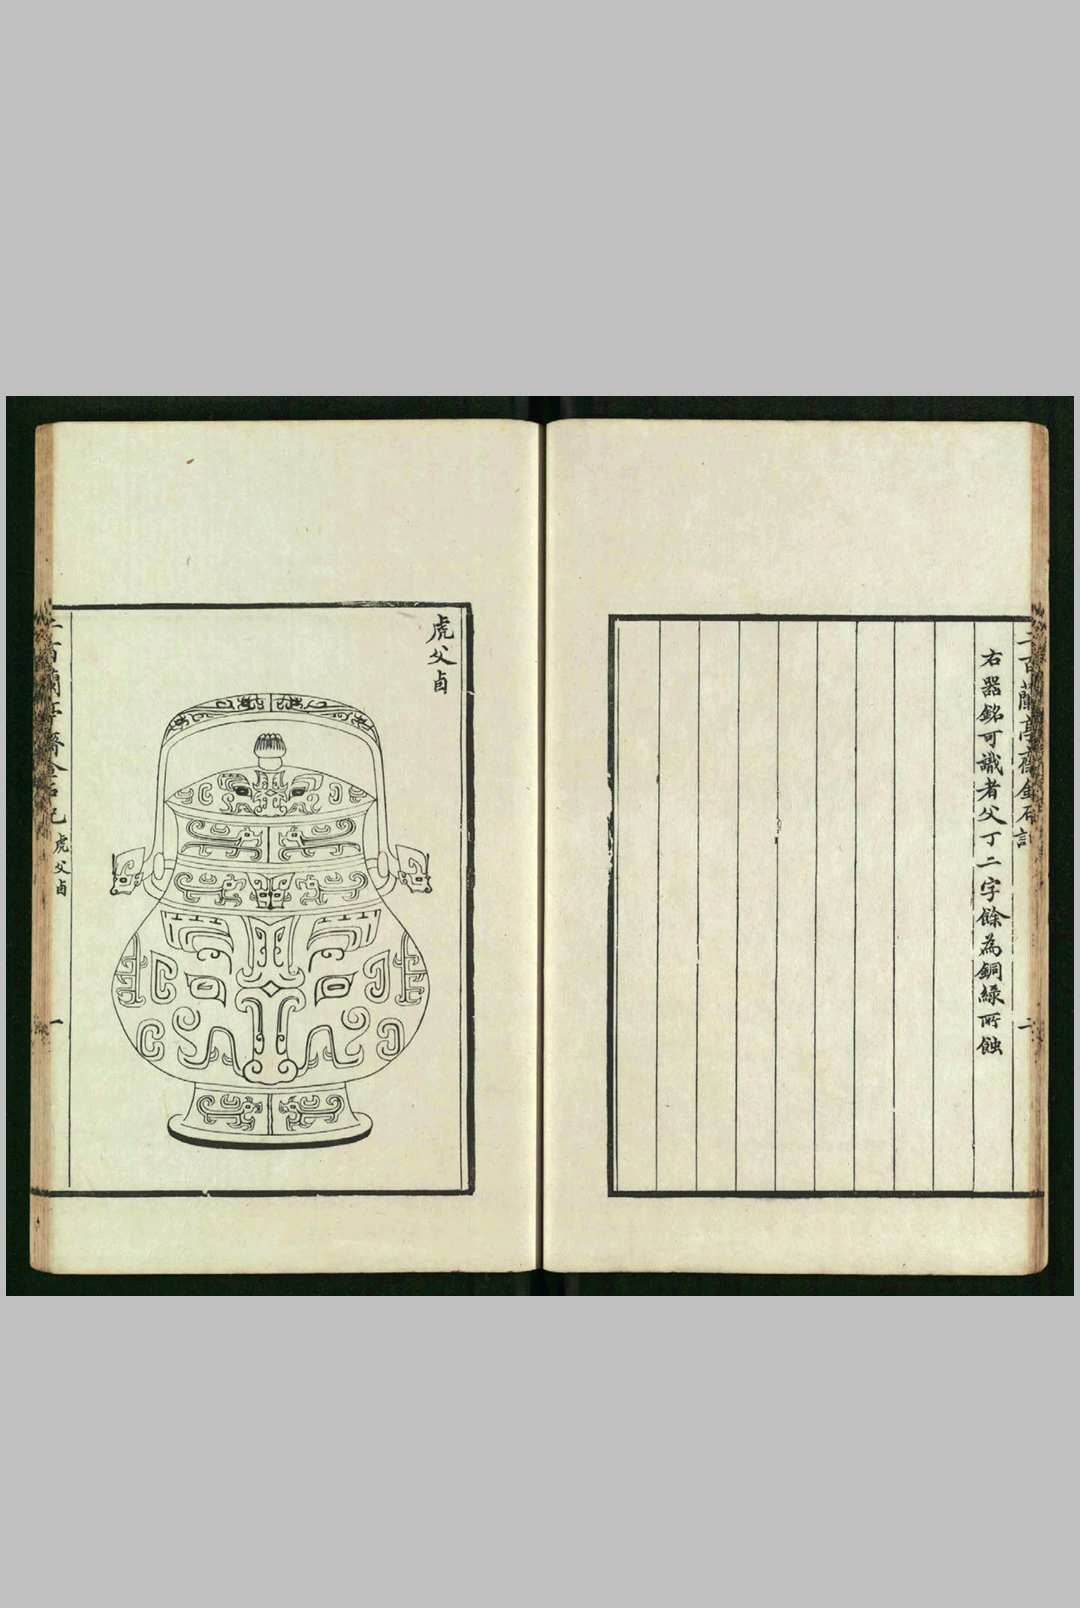 二百蘭亭齋金石記
二
右器銘可識者父丁二字餘為銅綠所蝕
虎父卣
二百蘭亭齋金石記
虎父卣
一